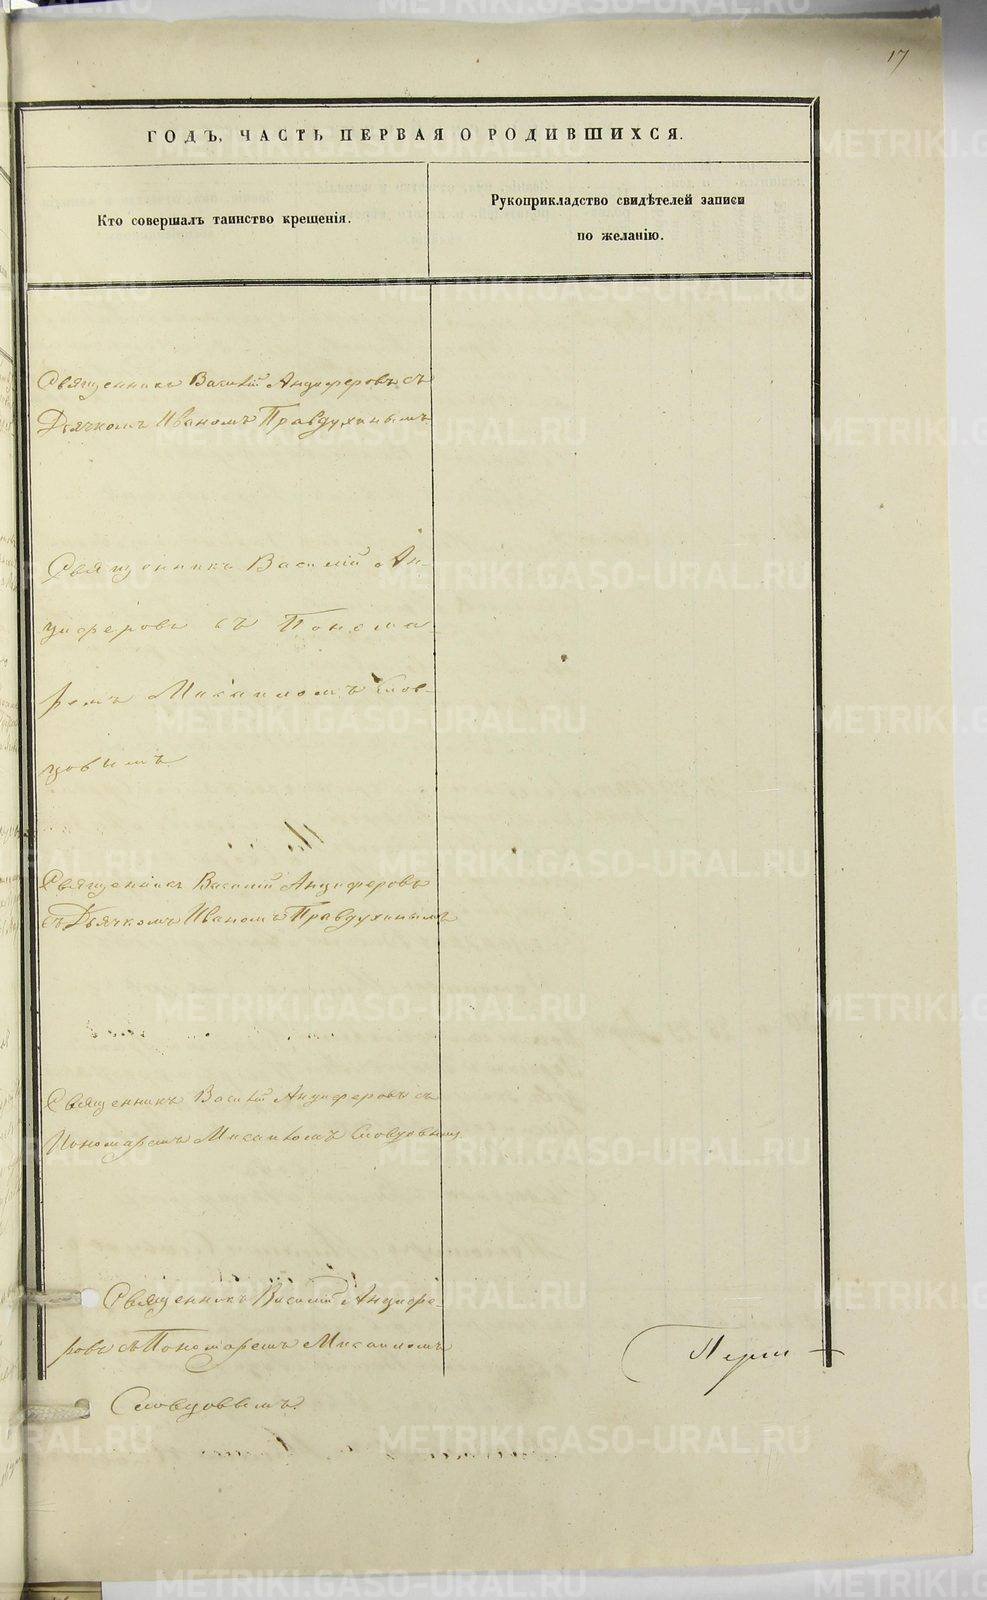 17
ГОДЪ, ЧАСТЬ ПЕРВАЯ О РОДИВШИХСЯ.
Кто совершалъ таинство крещенія.
Рукоприкладство свидѣтелей записи
по желанію.
Священникъ Василій Анциферовъ съ
Дьячкомъ Иваномъ Правдухинымъ
Священникъ Василій Ан-
циферовъ съ Понома-
ремъ Мисаиломъ Слов-
цовымъ
Священникъ Василій Анциферовъ
съ Дьячкомъ Иваномъ Правдухинымъ
Священникъ Василій Анциферовъ съ
Пономаремъ Мисаиломъ Словцовым
Священникъ Василій Анцифе-
ровъ съ Пономаремъ Мисаиломъ
Словцовымъ.
METRIKI.GASO-URAL.RU